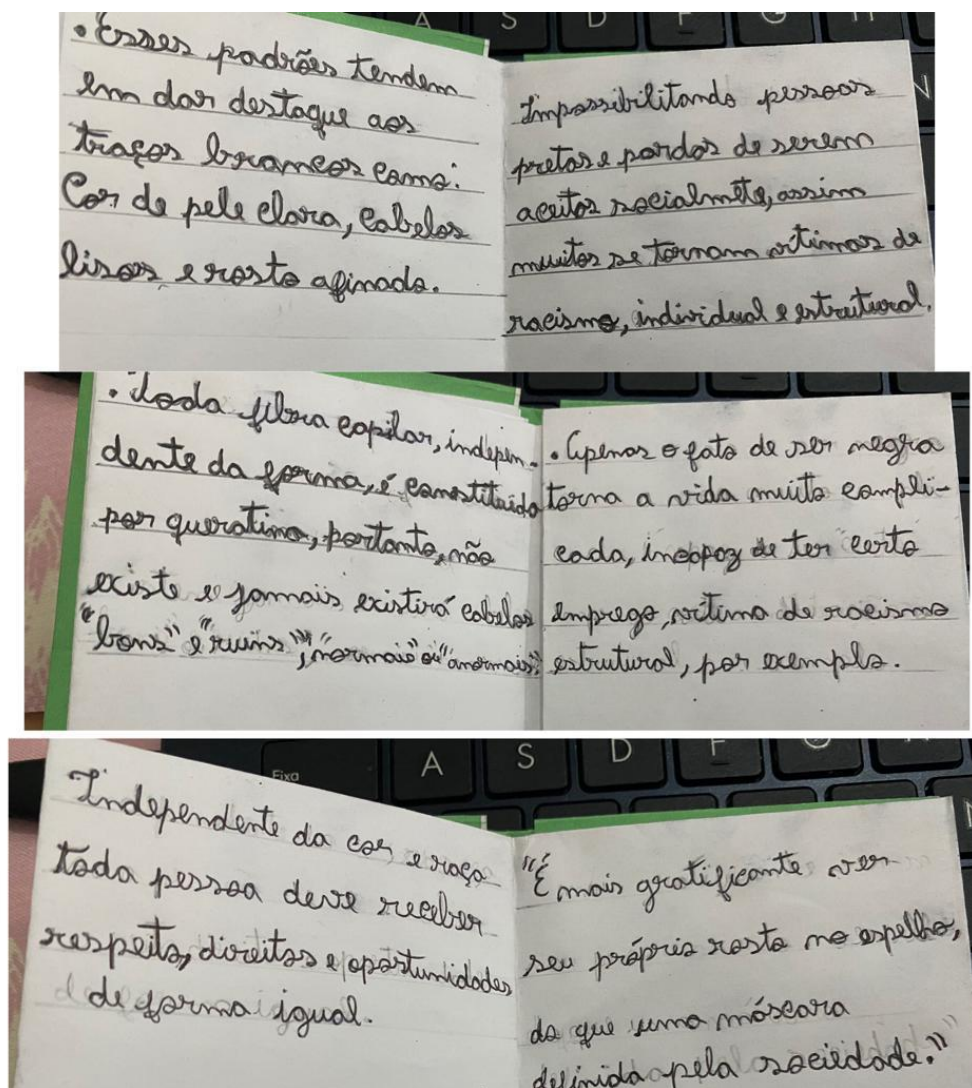 • Esses padrões tendem
em dar destaque aos
traços brancos como:
Cor de pele clara, cabelos
lisos e rosto afinado.
Impossibilitando pessoas
pretas e pardas de serem
aceitas socialmete, assim
muitos se tornam vítimas de
racismo, individual e estrutural.
• Toda fibra capilar, indepen-
dente da forma, é constituida
por queratina, portanto, não
existe e jamais existirá cabelos
"bons" e "ruins", "normais" ou "anormais".
• Apenas o fato de ser negra
torna a vida muito compli-
cada, incapaz de ter certo
emprego, vítima de racismo
estrutural, por exemplo.
Independente da cor e raça
toda pessoa deve receber
respeito, direitos e oportunidades
de forma igual.
"É mais gratificante ver
seu próprio rosto no espelho,
do que uma máscara
definida pela sociedade."
A S D F G H
N
Fixa
A S D F